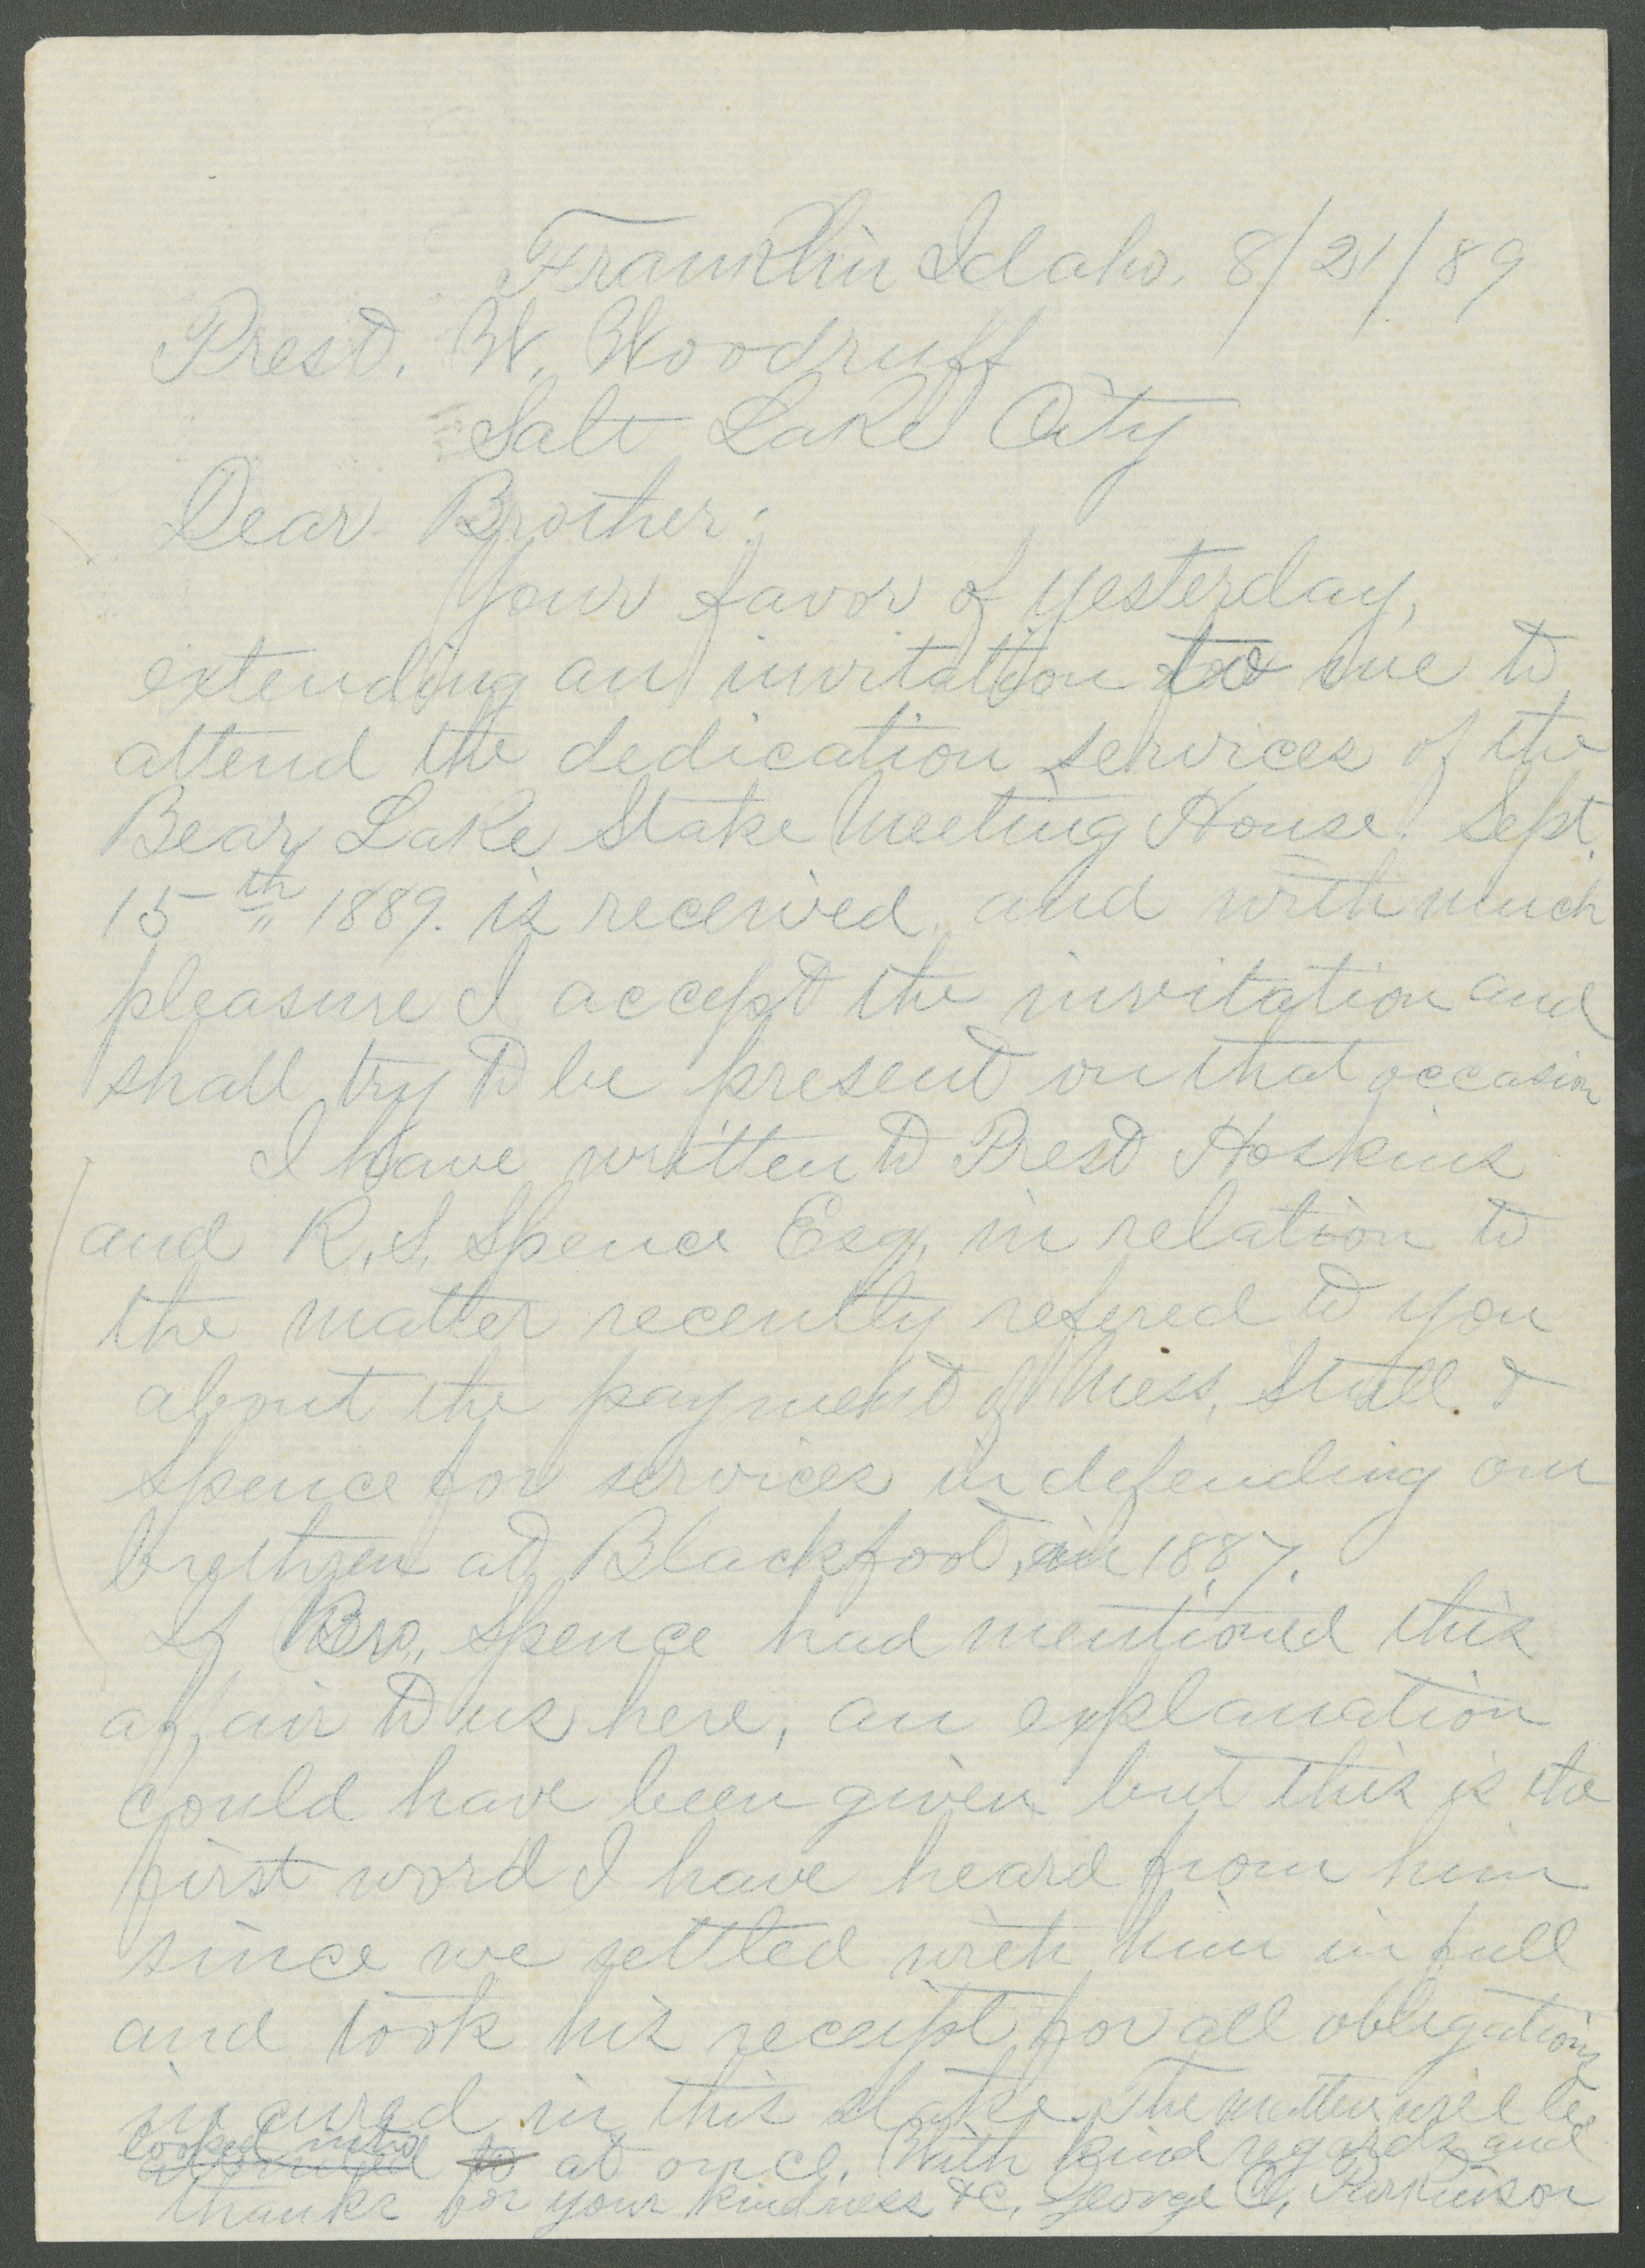 Franklin Idaho. 8/21/89
Prest. W. Woodruff
Salt Lake City
Dear Brother:
Your favor of yesterday,
extending an invitation to me to
attend the dedication services of the
Bear Lake Stake Meeting House Sept.
15th 1889. is received and with much
pleasure I accept the invitation and
shall try to be present on that occasion
I have written to Prest Hoskins
and R. S. Spence Esq. in relation to
the matter recently refered to you
about the payment of Mess. Stull &
Spence for services in defending our
brethren at Blackfoot, in 1887.
If Bro. Spence had mentioned this
affair to us here, an explanation
could have been given but this is the
first word I have heard from him
since we settled with him in full
and took his receipt for all obligations
incured in this stake. The matter will be
looked into
attended to at once. With kind regards and
thanks for your kindness &c, George C. Parkinson